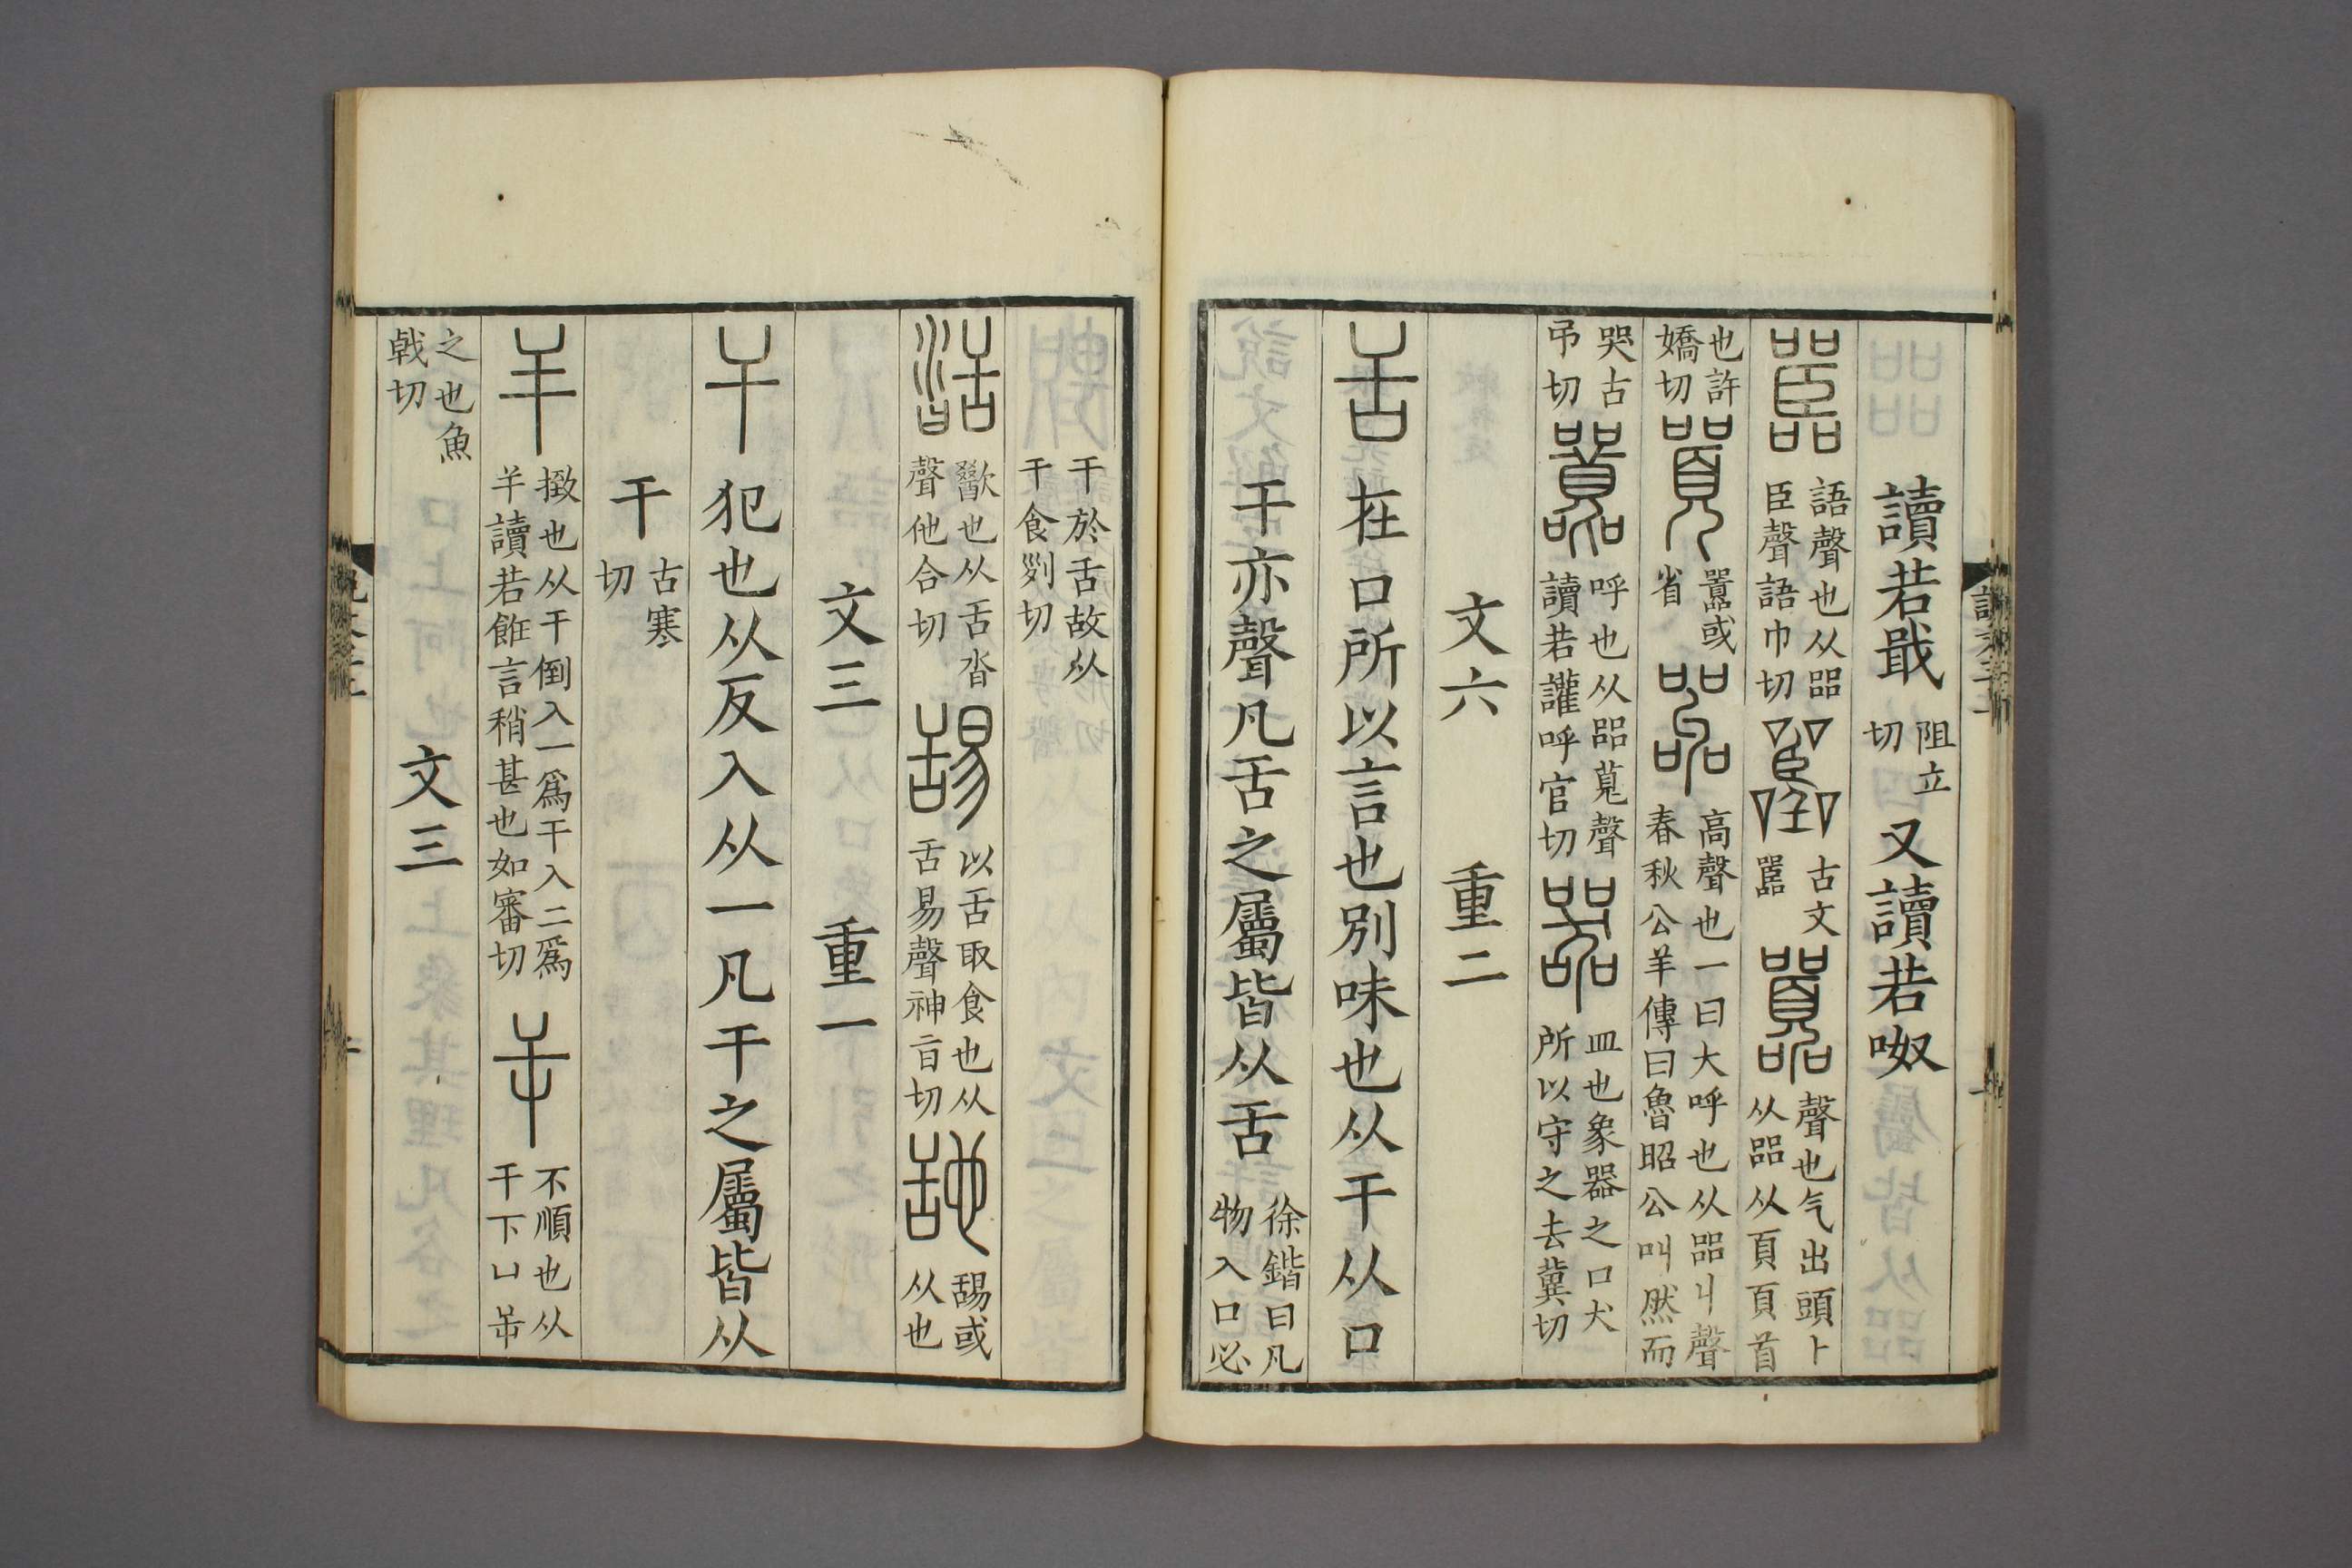 讀若戢阻立切又讀若呶
嚚語聲也从㗊臣聲語巾切古文嚚囂聲也气出頭上从㗊从頁頁首
也許嬌切囂或省嘂高聲也一曰大呼也从㗊丩聲春秋公羊傳曰魯昭公叫然而
哭古弔切𠾐呼也从㗊萈聲讀若讙呼官切器皿也象器之口犬所以守之去冀切
文六 重二
舌在口所以言也別味也从干从口
干亦聲凡舌之屬皆从舌徐鍇曰凡物入口必
干於舌故从干食列切
歠也从舌沓聲他合切舓以舌取食也从舌易聲神旨切舓或从也
文三 重一
干犯也从反入从一凡干之屬皆从
干古寒切
𢆉撖也从干倒入一爲干入二爲𢆉讀若飪言稍甚也如審切屰不順也从干下凵屰
之也魚戟切 文三